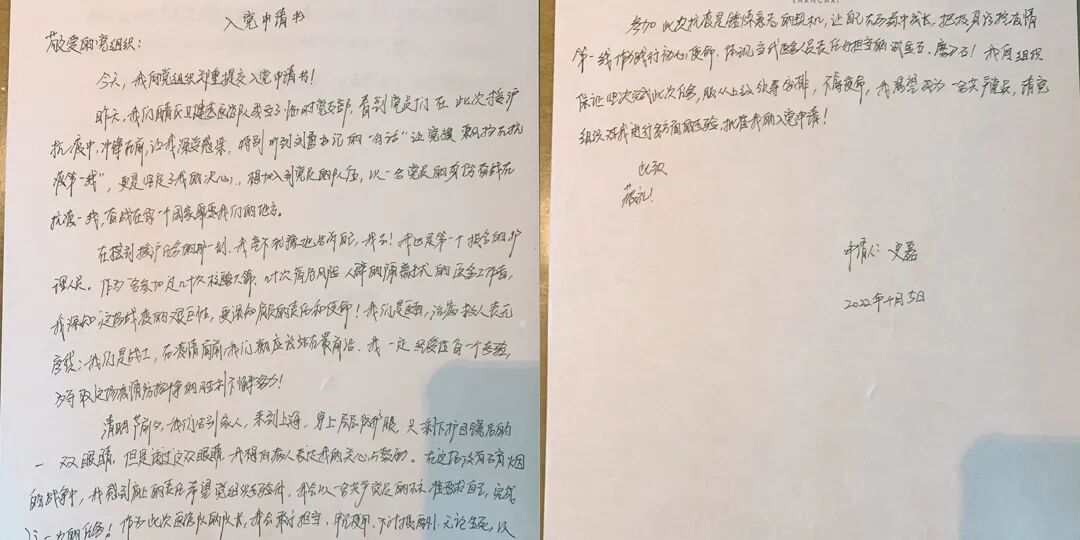 入党申请书
敬爱的党组织：
今天，我向党组织郑重提交入党申请书！
昨天，我们医疗队成立了临时党支部，看到党员们在此次援沪
抗疫中，冲锋在前，让我深受感染，特别听到刘书记的"的话"让党旗飘扬在抗
疫第一线"，更是坚定了我的决心，想加入到党员的队伍，以一名党员的身份奋战在
抗疫一线，奋战在每一个国家需要我们的地方。
在接到援沪任务的那一刻，我毫不犹豫地告诉自己，我去！我也是第一个报名的护
理人员。作为一名参加过几十次核酸大筛、几十次的医务工作者，
我深知这场战疫的艰巨性，更深知肩负的责任和使命！我们是医者，治病救人责无
旁贷；我们是战士，在疫情面前，我们都应该站在最前沿。我一定经受住每一个考验，
为夺取这场疫情防控战的胜利不懈努力！
清明节前夕，我们告别家人，来到上海，穿上层层防护服，只剩下护目镜后的
一双眼睛，但是透过这双眼睛，我想向病人表达我的关心与鼓励。在这场没有硝烟
的战争中，我感到肩上的责任希望党组织考验我，我会以一名共产党员的标准要求自己，完成
一次的任务！作为此次医疗队的队长，我会承担担当，牢记使用，不计报酬，无论生死，以
参加此次抗疫是锤炼意志的契机，让自己在历练中成长，把投身防控疫情
第一线作为践行初心使命、体现当代医务人员责任与担当的试金石、磨刀石！我向组织
保证坚决完成此次任务，服从上级领导安排，不辱使命，我渴望成为一名共产党员，请党
组织对我进行多方面的考验，批准我的入党申请！
此致
敬礼！
申请人：史磊
2022年4月5日